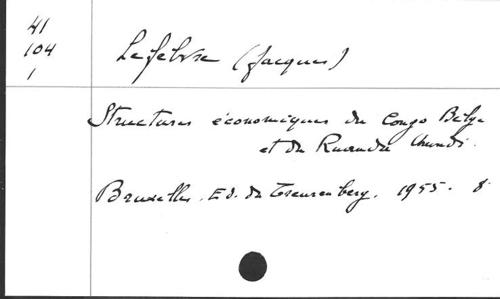 41
104
1
Lefebvre (Jacques)
Structures économiques du Congo Belge
et du Ruanda Urundi.
Bruxelles. Ed. du Treurenberg. 1955. 8°